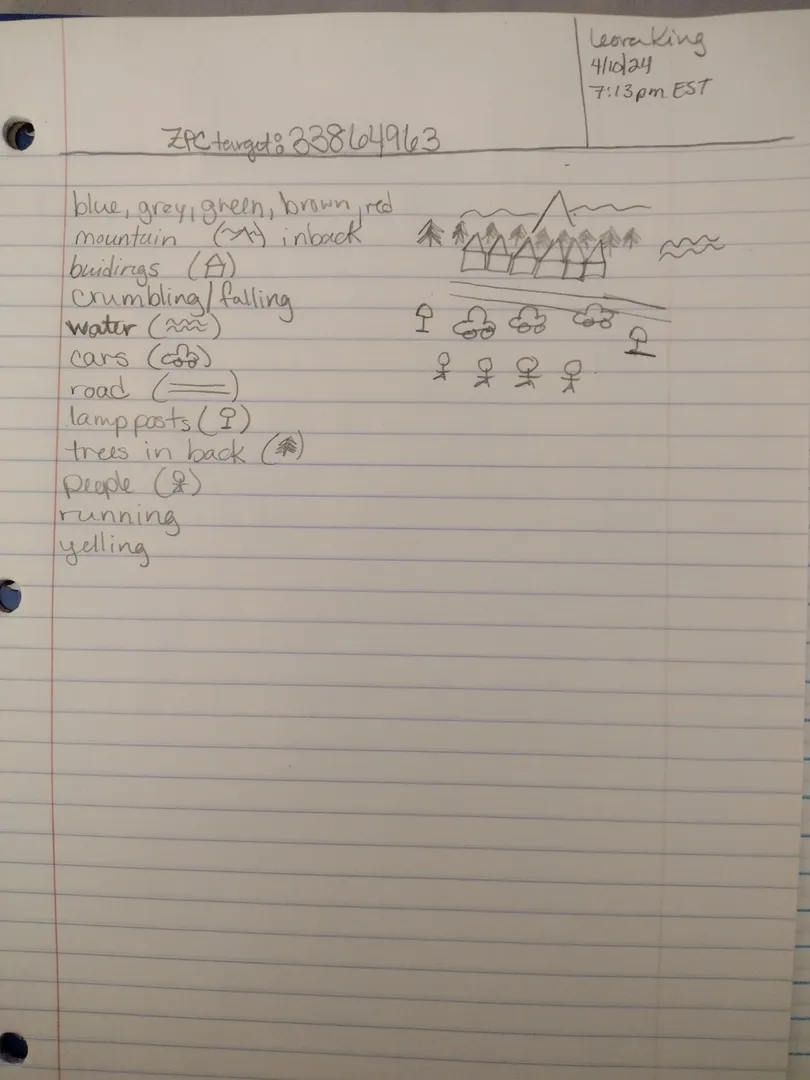 Leora King
4/10/24
7:13pm EST
ZPC target: 33864963
blue, grey, green, brown, red
mountain ( ) in back
buidings ( )
crumbling/falling
water ( )
cars ( )
road ( )
lamp posts ( )
trees in back ( )
people ( )
running
yelling